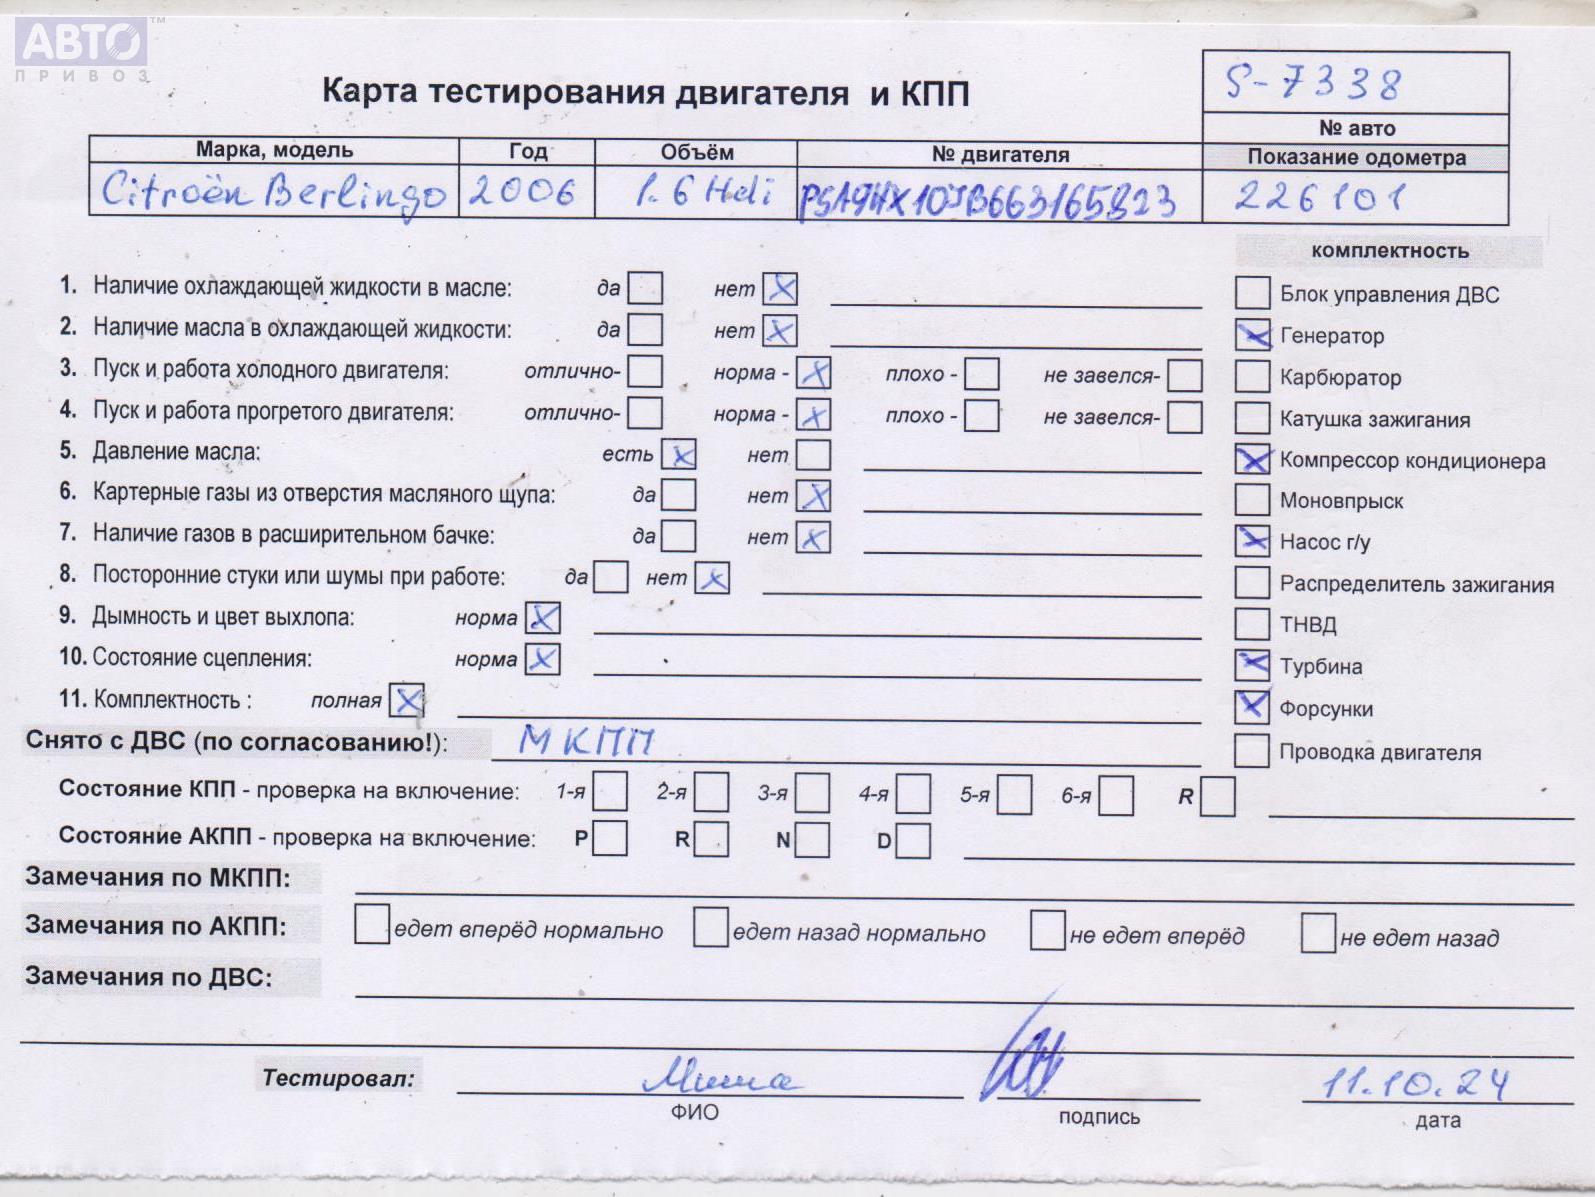 АВТО ™
ПРИВОЗ
Карта тестирования двигателя и КПП
S-7338
№ авто
Марка, модель Год Объём № двигателя Показание одометра
Citroën Berlingo 2006 1.6 Hdi PSA9HX10JB663165823 226101
комплектность
1. Наличие охлаждающей жидкости в масле: да нет X
Блок управления ДВС
2. Наличие масла в охлаждающей жидкости: да нет X
X Генератор
3. Пуск и работа холодного двигателя: отлично- норма - X плохо - не завелся-
Карбюратор
4. Пуск и работа прогретого двигателя: отлично- норма - X плохо - не завелся-
Катушка зажигания
5. Давление масла: есть X нет
X Компрессор кондиционера
6. Картерные газы из отверстия масляного щупа: да нет X
Моновпрыск
7. Наличие газов в расширительном бачке: да нет X
X Насос г/у
8. Посторонние стуки или шумы при работе: да нет X
Распределитель зажигания
9. Дымность и цвет выхлопа: норма X
ТНВД
10. Состояние сцепления: норма X
X Турбина
11. Комплектность : полная X
X Форсунки
Снято с ДВС (по согласованию!): МКПП
Проводка двигателя
Состояние КПП - проверка на включение: 1-я 2-я 3-я 4-я 5-я 6-я R
Состояние АКПП - проверка на включение: P R N D
Замечания по МКПП:
Замечания по АКПП: едет вперёд нормально едет назад нормально не едет вперёд не едет назад
Замечания по ДВС:
Тестировал: Миша 11.10.24
ФИО подпись дата